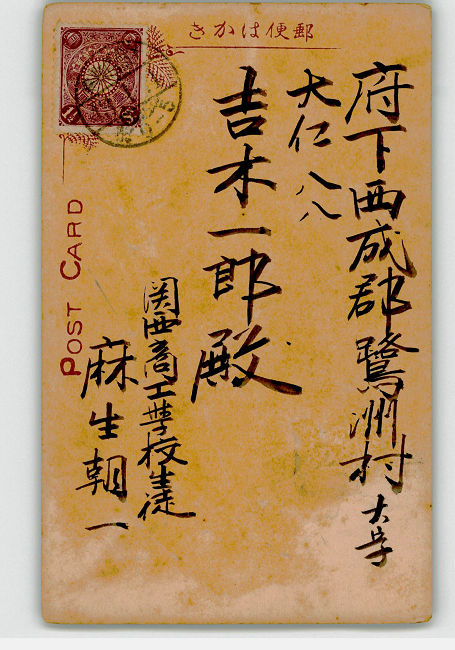 きかは便郵
府下西成郡鷺洲村大字
大仁八八
吉木一郎殿
関西商工学校生徒
麻生朝一
POST CARD